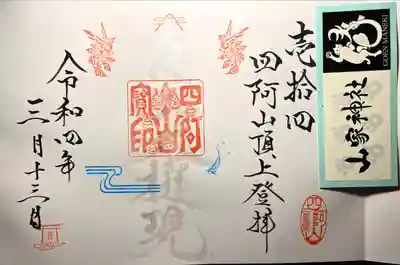 GOEN MANEKI
山家神社
壱拾四
四阿山頂上登拝
四阿山寶印
権現
令和四年
三月十三日